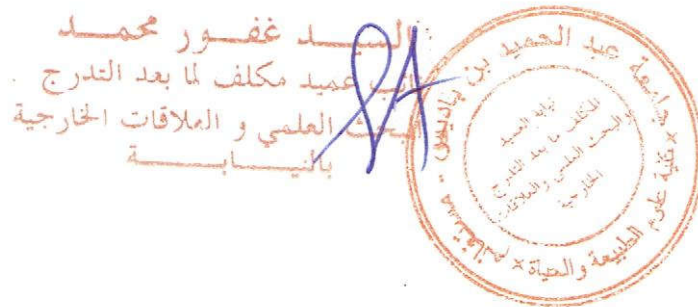 السيـــد غفـــور محمـــد
نائب عميد مكلف لما بعد التدرج
البحث العلمي و العلاقات الخارجية
بالنيـــابـــــة
جامعة عبد الحميد بن باديس - مستغانم
كلية علوم الطبيعة والحياة
نيابة العميد
المكلف لما بعد التدرج
و البحث العلمي و العلاقات
الخارجية